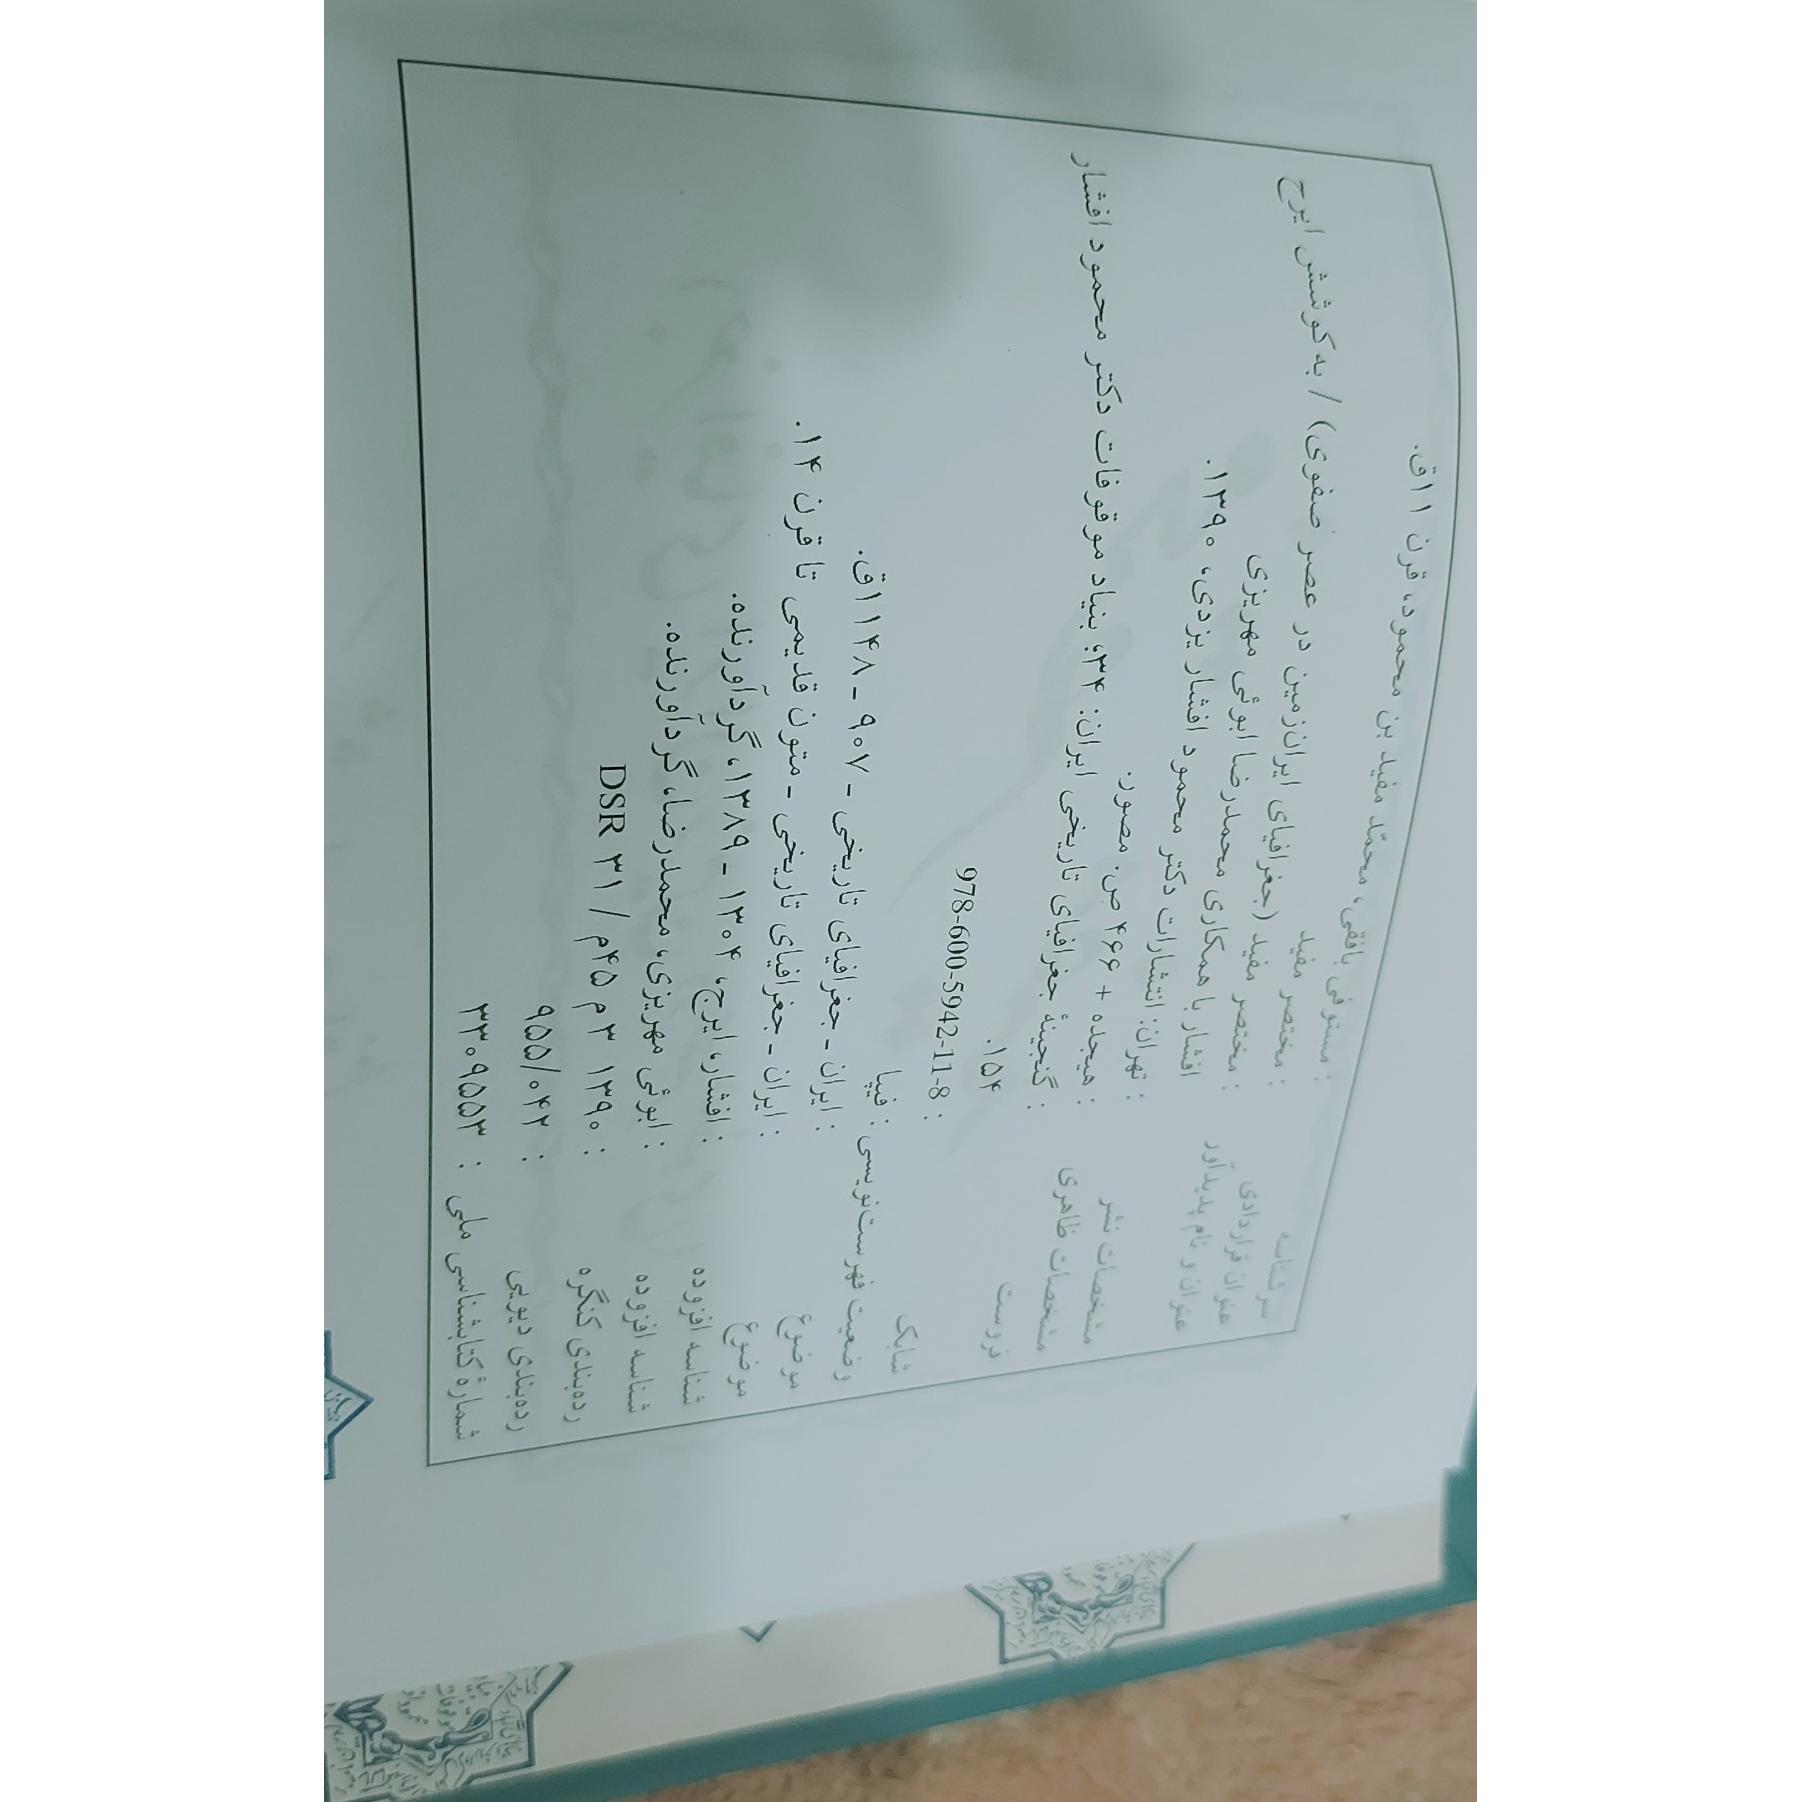 سرشناسه : مستوفی بافقی، محمّد مفید بن محمود، قرن ۱۱ق.
عنوان قراردادی : مختصر مفید
عنوان و نام پدیدآور : مختصر مفید (جغرافیای ایران‌زمین در عصر صفوی) / به کوشش ایرج
افشار با همکاری محمدرضا ابوئی مهریزی
مشخصات نشر : تهران: انتشارات دکتر محمود افشار یزدی، ۱۳۹۰.
مشخصات ظاهری : هیجده + ۴۶۶ ص. مصور.
فروست : گنجینهٔ جغرافیای تاریخی ایران: ۳۴؛ بنیاد موقوفات دکتر محمود افشار
۱۵۴.
شابک : 978-600-5942-11-8
وضعیت فهرست‌نویسی : فیپا
موضوع : ایران - جغرافیای تاریخی - ۹۰۷ - ۱۱۴۸ق.
موضوع : ایران - جغرافیای تاریخی - متون قدیمی تا قرن ۱۴.
شناسه افزوده : افشار، ایرج، ۱۳۰۴ - ۱۳۸۹، گردآورنده.
شناسه افزوده : ابوئی مهریزی، محمدرضا، گردآورنده.
رده‌بندی کنگره : ۱۳۹۰ ۳ م ۴۵م / DSR ۳۱
رده‌بندی دیویی : ۹۵۵/۰۴۲
شمارهٔ کتابشناسی ملی : ۲۳۰۹۵۵۳